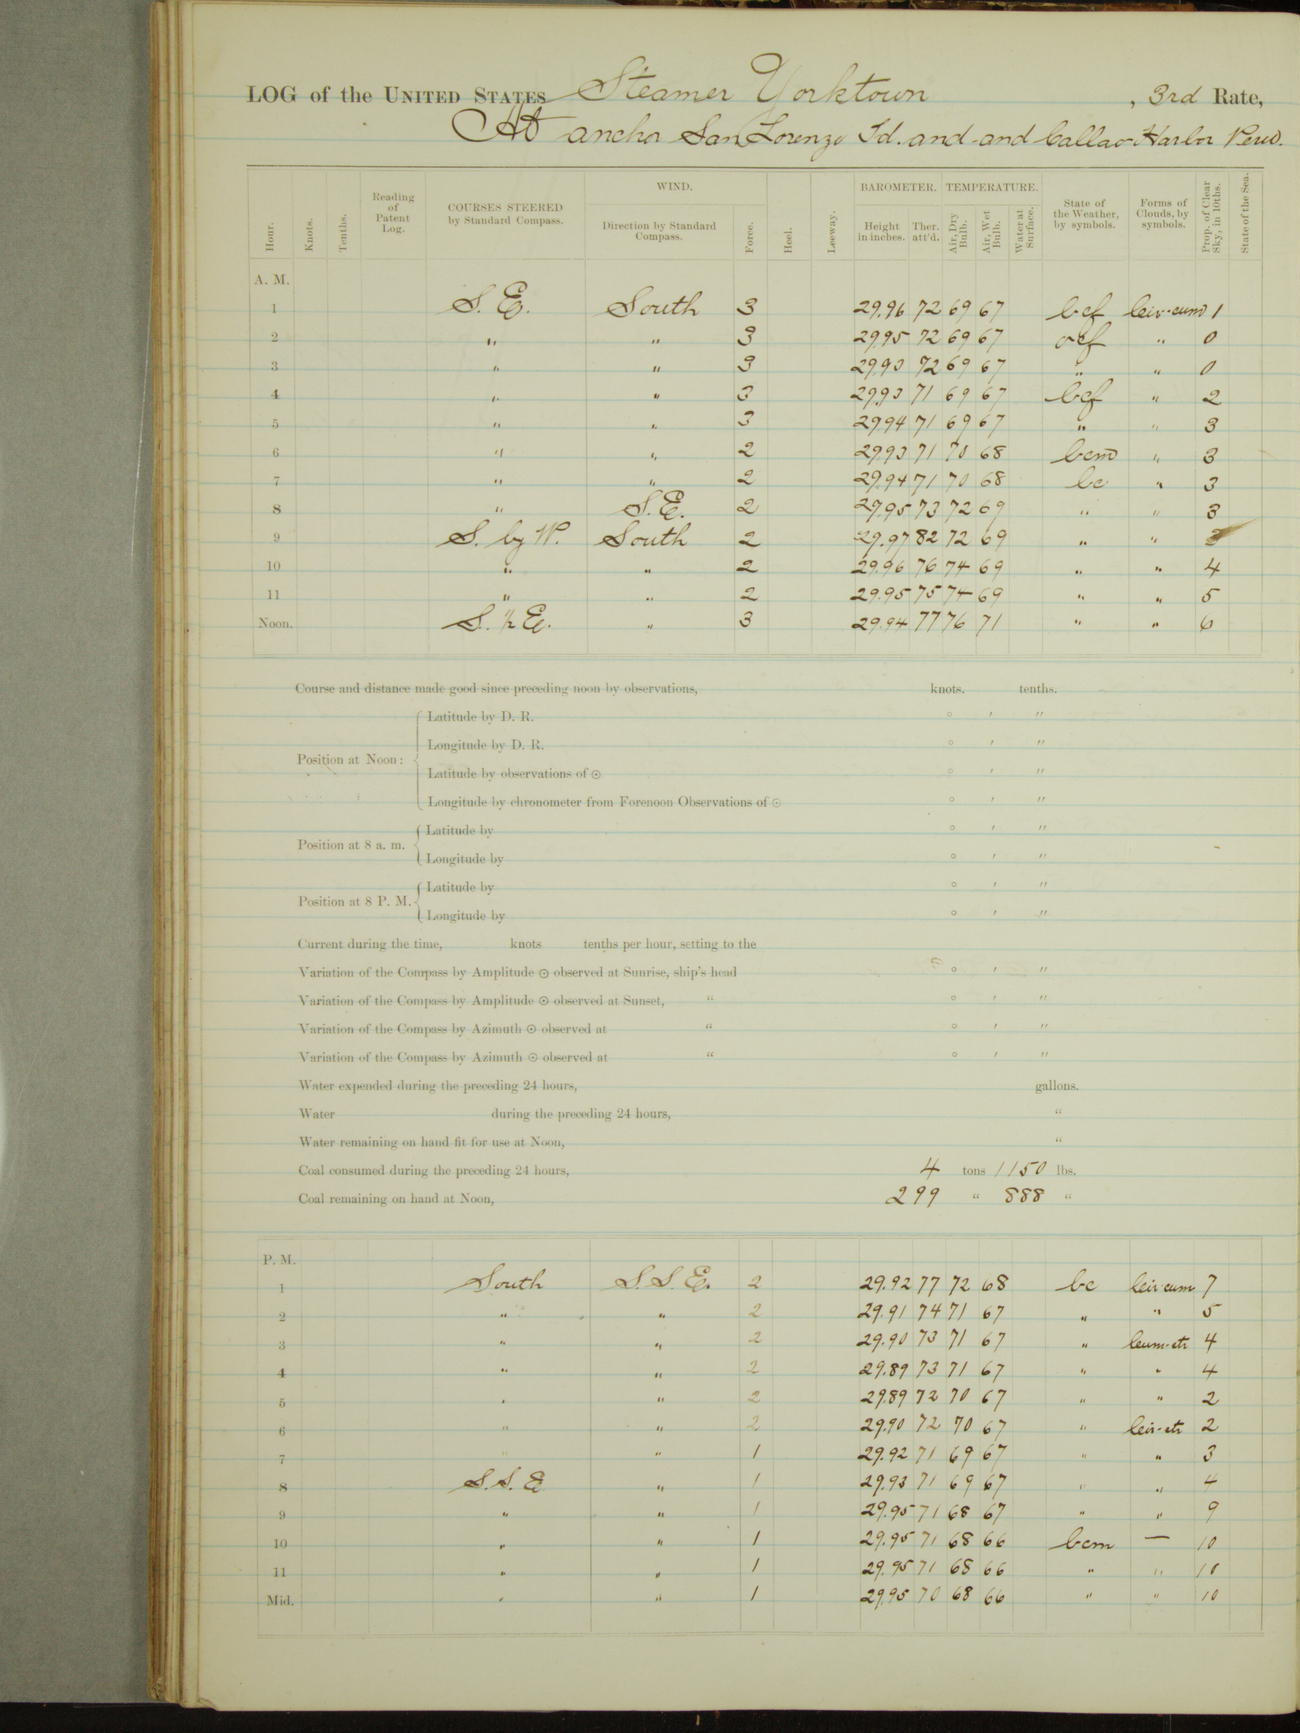 LOG of the UNITED STATES Steamer Yorktown, 3rd Rate,
At anchor San Lorenzo Id. and and Callao Harbor Peru.
Hour. Knots. Tenths. Reading of Patent Log. COURSES STEERED by Standard Compass. WIND. Direction by Standard Compass. Force. Heel. Leeway. BAROMETER. Height in inches. Ther. att'd. TEMPERATURE. Air, Dry Bulb. Air, Wet Bulb. Water at Surface. State of the Weather, by symbols. Forms of Clouds, by symbols. Prop. of Clear Sky, in 10ths. State of the Sea.
A. M.
1 S. E. South 3 29.96 72 69 67 bcf cir-cum 1
2 " " 3 29.95 72 69 67 ocf " 0
3 " " 3 29.93 72 69 67 " " 0
4 " " 3 29.93 71 69 67 bcf " 2
5 " " 3 29.94 71 69 67 " " 3
6 " " 2 29.93 71 70 68 bcm " 3
7 " " 2 29.94 71 70 68 bc " 3
8 " S.E. 2 29.95 73 72 69 " " 3
9 S. by W. South 2 29.97 82 72 69 " "
10 " " 2 29.96 76 74 69 " " 4
11 " " 2 29.95 75 74 69 " " 5
Noon. S. 1/2 E. " 3 29.94 77 76 71 " " 6
Course and distance made good since preceding noon by observations, knots. tenths.
Position at Noon: Latitude by D. R. ° ' "
Longitude by D. R. ° ' "
Latitude by observations of ☉ ° ' "
Longitude by chronometer from Forenoon Observations of ☉ ° ' "
Position at 8 a. m. Latitude by ° ' "
Longitude by ° ' "
Position at 8 P. M. Latitude by ° ' "
Longitude by ° ' "
Current during the time, knots tenths per hour, setting to the
Variation of the Compass by Amplitude ☉ observed at Sunrise, ship's head ° ' "
Variation of the Compass by Amplitude ☉ observed at Sunset, " ° ' "
Variation of the Compass by Azimuth ☉ observed at " ° ' "
Variation of the Compass by Azimuth ☉ observed at " ° ' "
Water expended during the preceding 24 hours, gallons.
Water during the preceding 24 hours, "
Water remaining on hand fit for use at Noon, "
Coal consumed during the preceding 24 hours, 4 tons 1150 lbs.
Coal remaining on hand at Noon, 299 " 888 "
P. M.
1 South S.S.E. 2 29.92 77 72 68 bc cir-cum 7
2 " " 2 29.91 74 71 67 " " 5
3 " " 2 29.90 73 71 67 " cum-str 4
4 " " 2 29.89 73 71 67 " " 4
5 " " 2 29.89 72 70 67 " " 2
6 " " 2 29.90 72 70 67 " cir-str 2
7 " " 1 29.92 71 69 67 " " 3
8 S.S.E " 1 29.93 71 69 67 " " 4
9 " " 1 29.95 71 68 67 " " 9
10 " " 1 29.95 71 68 66 bcm — 10
11 " " 1 29.95 71 68 66 " " 10
Mid. " " 1 29.95 70 68 66 " " 10